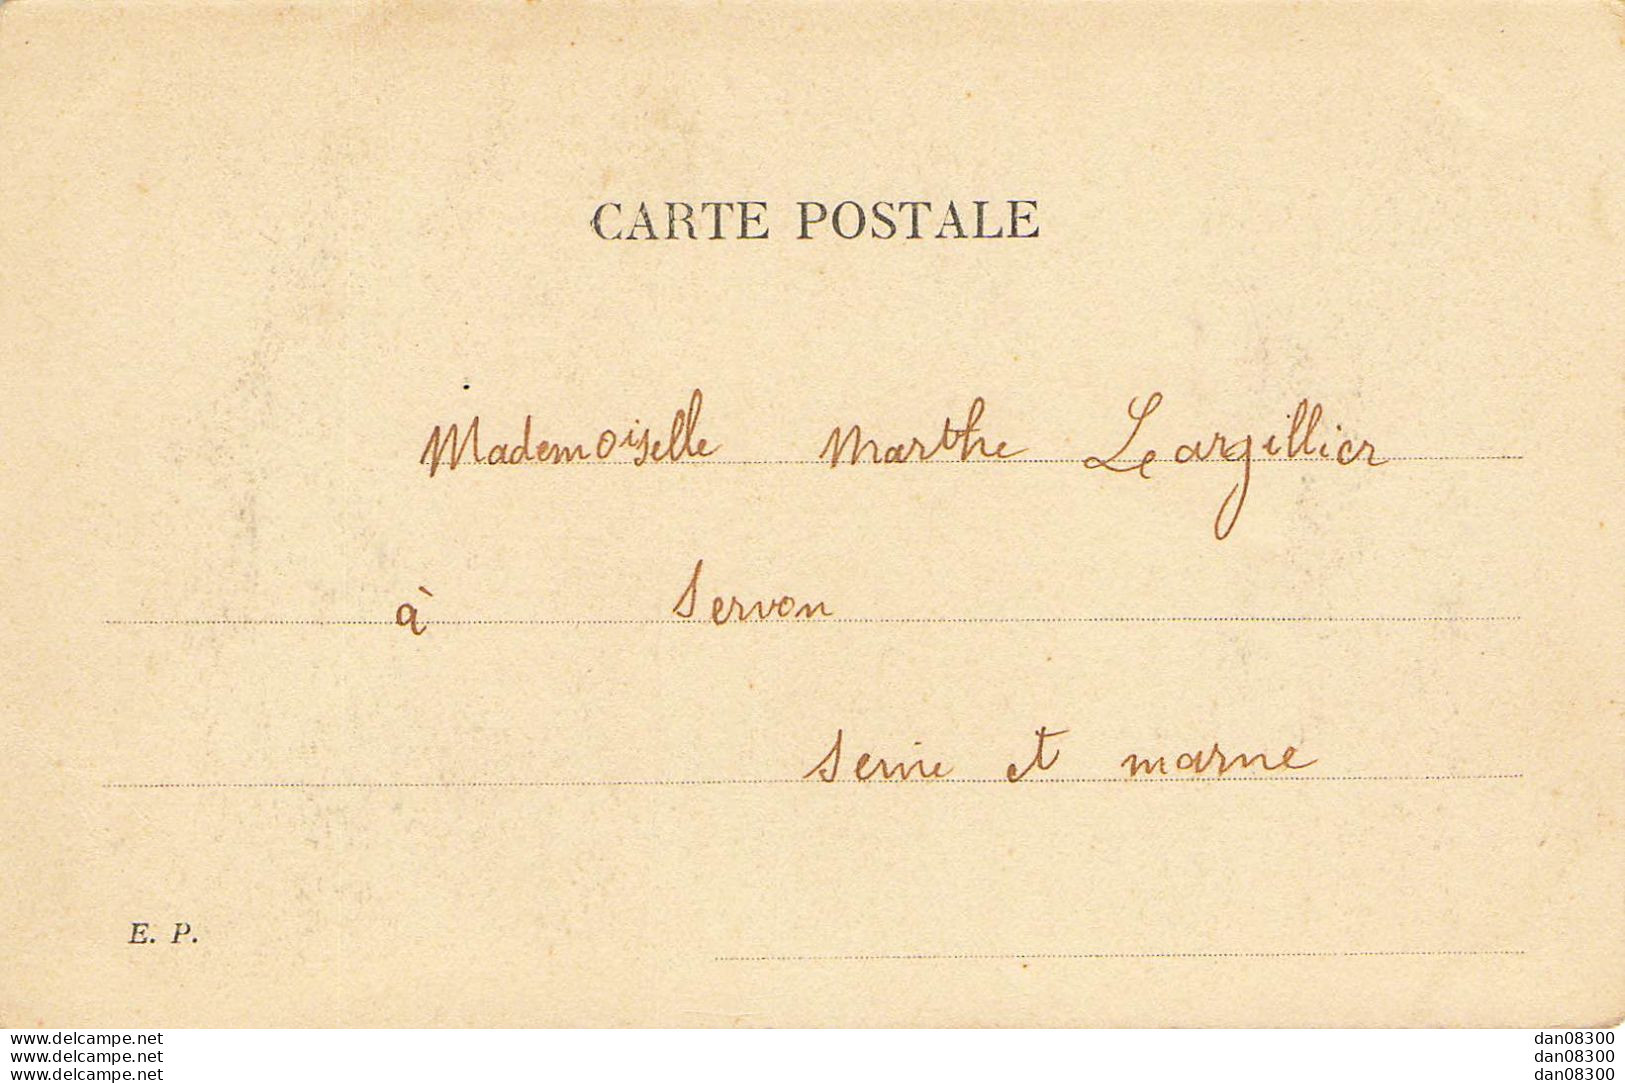 CARTE POSTALE
Mademoiselle Marthe Leargillier
à Servon
Seine et marne
E. P.
www.delcampe.net dan08300
www.delcampe.net dan08300
www.delcampe.net dan08300